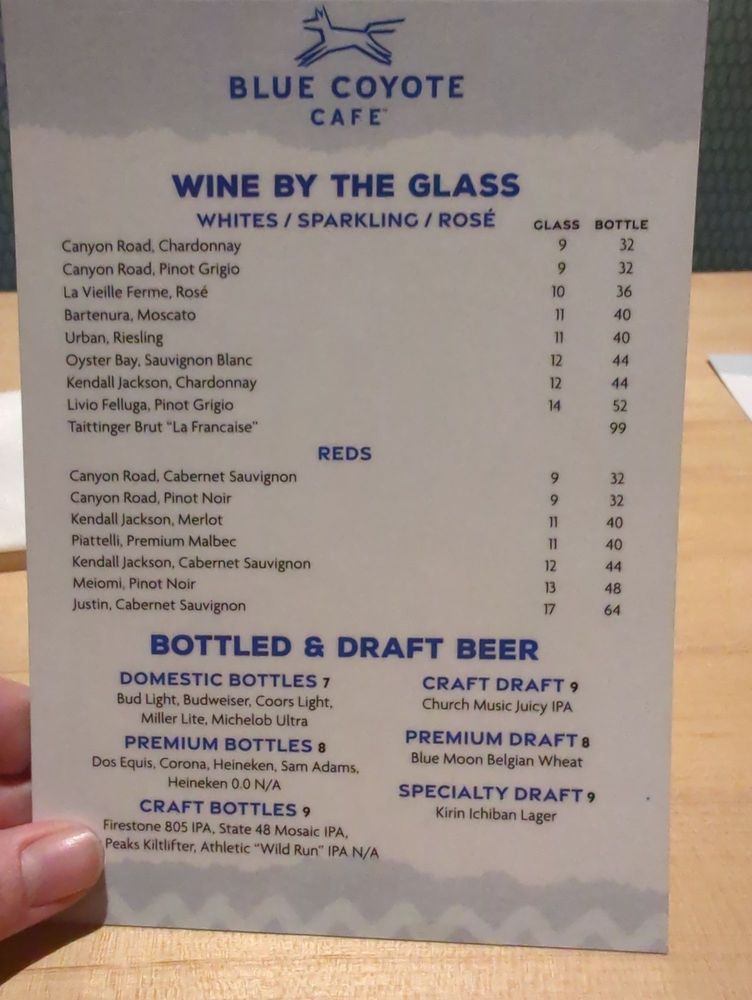 BLUE COYOTE
CAFE™
WINE BY THE GLASS
WHITES / SPARKLING / ROSÉ GLASS BOTTLE
Canyon Road, Chardonnay 9 32
Canyon Road, Pinot Grigio 9 32
La Vieille Ferme, Rosé 10 36
Bartenura, Moscato 11 40
Urban, Riesling 11 40
Oyster Bay, Sauvignon Blanc 12 44
Kendall Jackson, Chardonnay 12 44
Livio Felluga, Pinot Grigio 14 52
Taittinger Brut “La Francaise” 99
REDS
Canyon Road, Cabernet Sauvignon 9 32
Canyon Road, Pinot Noir 9 32
Kendall Jackson, Merlot 11 40
Piattelli, Premium Malbec 11 40
Kendall Jackson, Cabernet Sauvignon 12 44
Meiomi, Pinot Noir 13 48
Justin, Cabernet Sauvignon 17 64
BOTTLED & DRAFT BEER
DOMESTIC BOTTLES 7
Bud Light, Budweiser, Coors Light,
Miller Lite, Michelob Ultra
PREMIUM BOTTLES 8
Dos Equis, Corona, Heineken, Sam Adams,
Heineken 0.0 N/A
CRAFT BOTTLES 9
Firestone 805 IPA, State 48 Mosaic IPA,
Peaks Kiltlifter, Athletic “Wild Run” IPA N/A
CRAFT DRAFT 9
Church Music Juicy IPA
PREMIUM DRAFT 8
Blue Moon Belgian Wheat
SPECIALTY DRAFT 9
Kirin Ichiban Lager